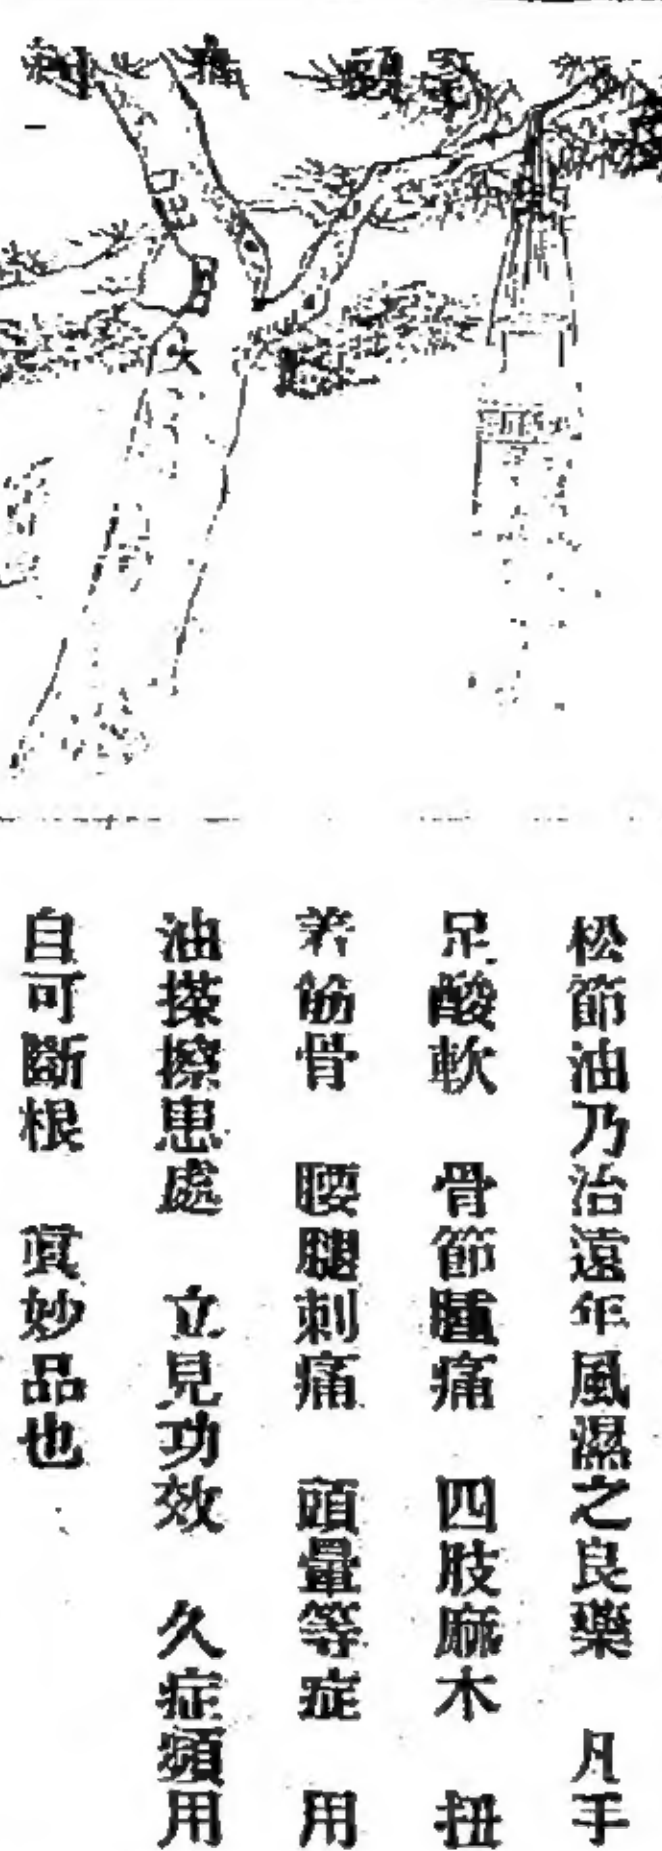 松節油乃治遠年風濕之良藥 凡手
足酸軟 骨節腫痛 四肢麻木 扭
着筋骨 腰腿刺痛 頭暈等症 用
油搽擦患處 立見功效 久症頻用
自可斷根 眞妙品也